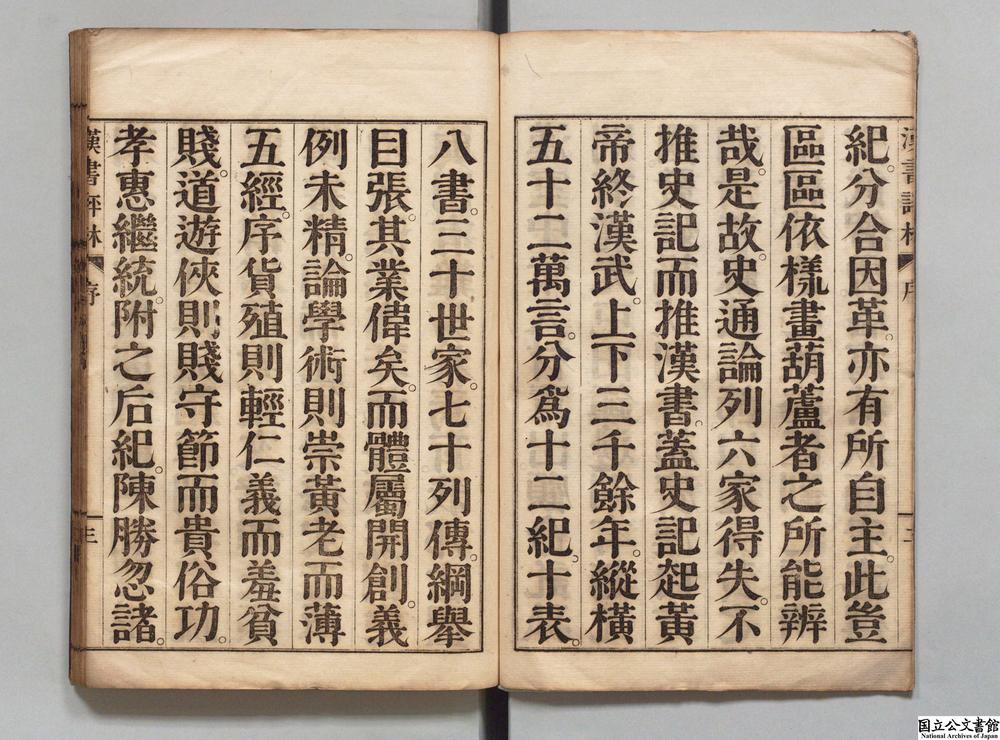 紀。分合因革。亦有所自主。此豈
區區依樣畫葫蘆者之所能辨
哉。是故。史通論列六家得失。不
推史記而推漢書。蓋史記起黃
帝終漢武。上下三千餘年。縱橫
五十二萬言。分爲十二紀。十表。
八書。三十世家。七十列傳。綱舉
目張。其業偉矣。而體屬開創。義
例未精。論學術則崇黃老而薄
五經。序貨殖則輕仁義而羞貧
賤。道遊俠則賤守節而貴俗功。
孝惠繼統。附之后紀。陳勝忽諸。
漢書評林
序
三
国立公文書館
National Archives of Japan